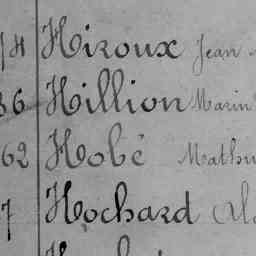 74 Hiroux Jean
36 Hillion Marin
62 Hobé Mathu
7 Hochard Al